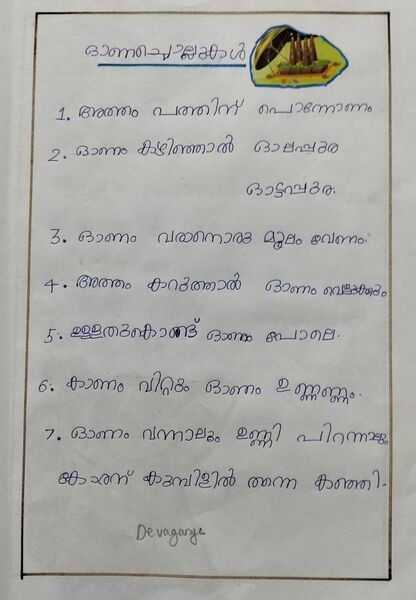 ഓണച്ചൊല്ലുകൾ
1. അത്തം പത്തിന് പൊന്നോണം
2. ഓണം കഴിഞ്ഞാൽ ഓലപ്പുര
ഓട്ടപ്പുര.
3. ഓണം വരാനൊരു മൂലം വേണം.
4. അത്തം കറുത്താൽ ഓണം വെളുക്കും
5. ഉള്ളതുകൊണ്ട് ഓണം പോലെ.
6. കാണം വിറ്റും ഓണം ഉണ്ണണം.
7. ഓണം വന്നാലും ഉണ്ണി പിറന്നാലും
കോരന് കുമ്പിളിൽ തന്നെ കഞ്ഞി.